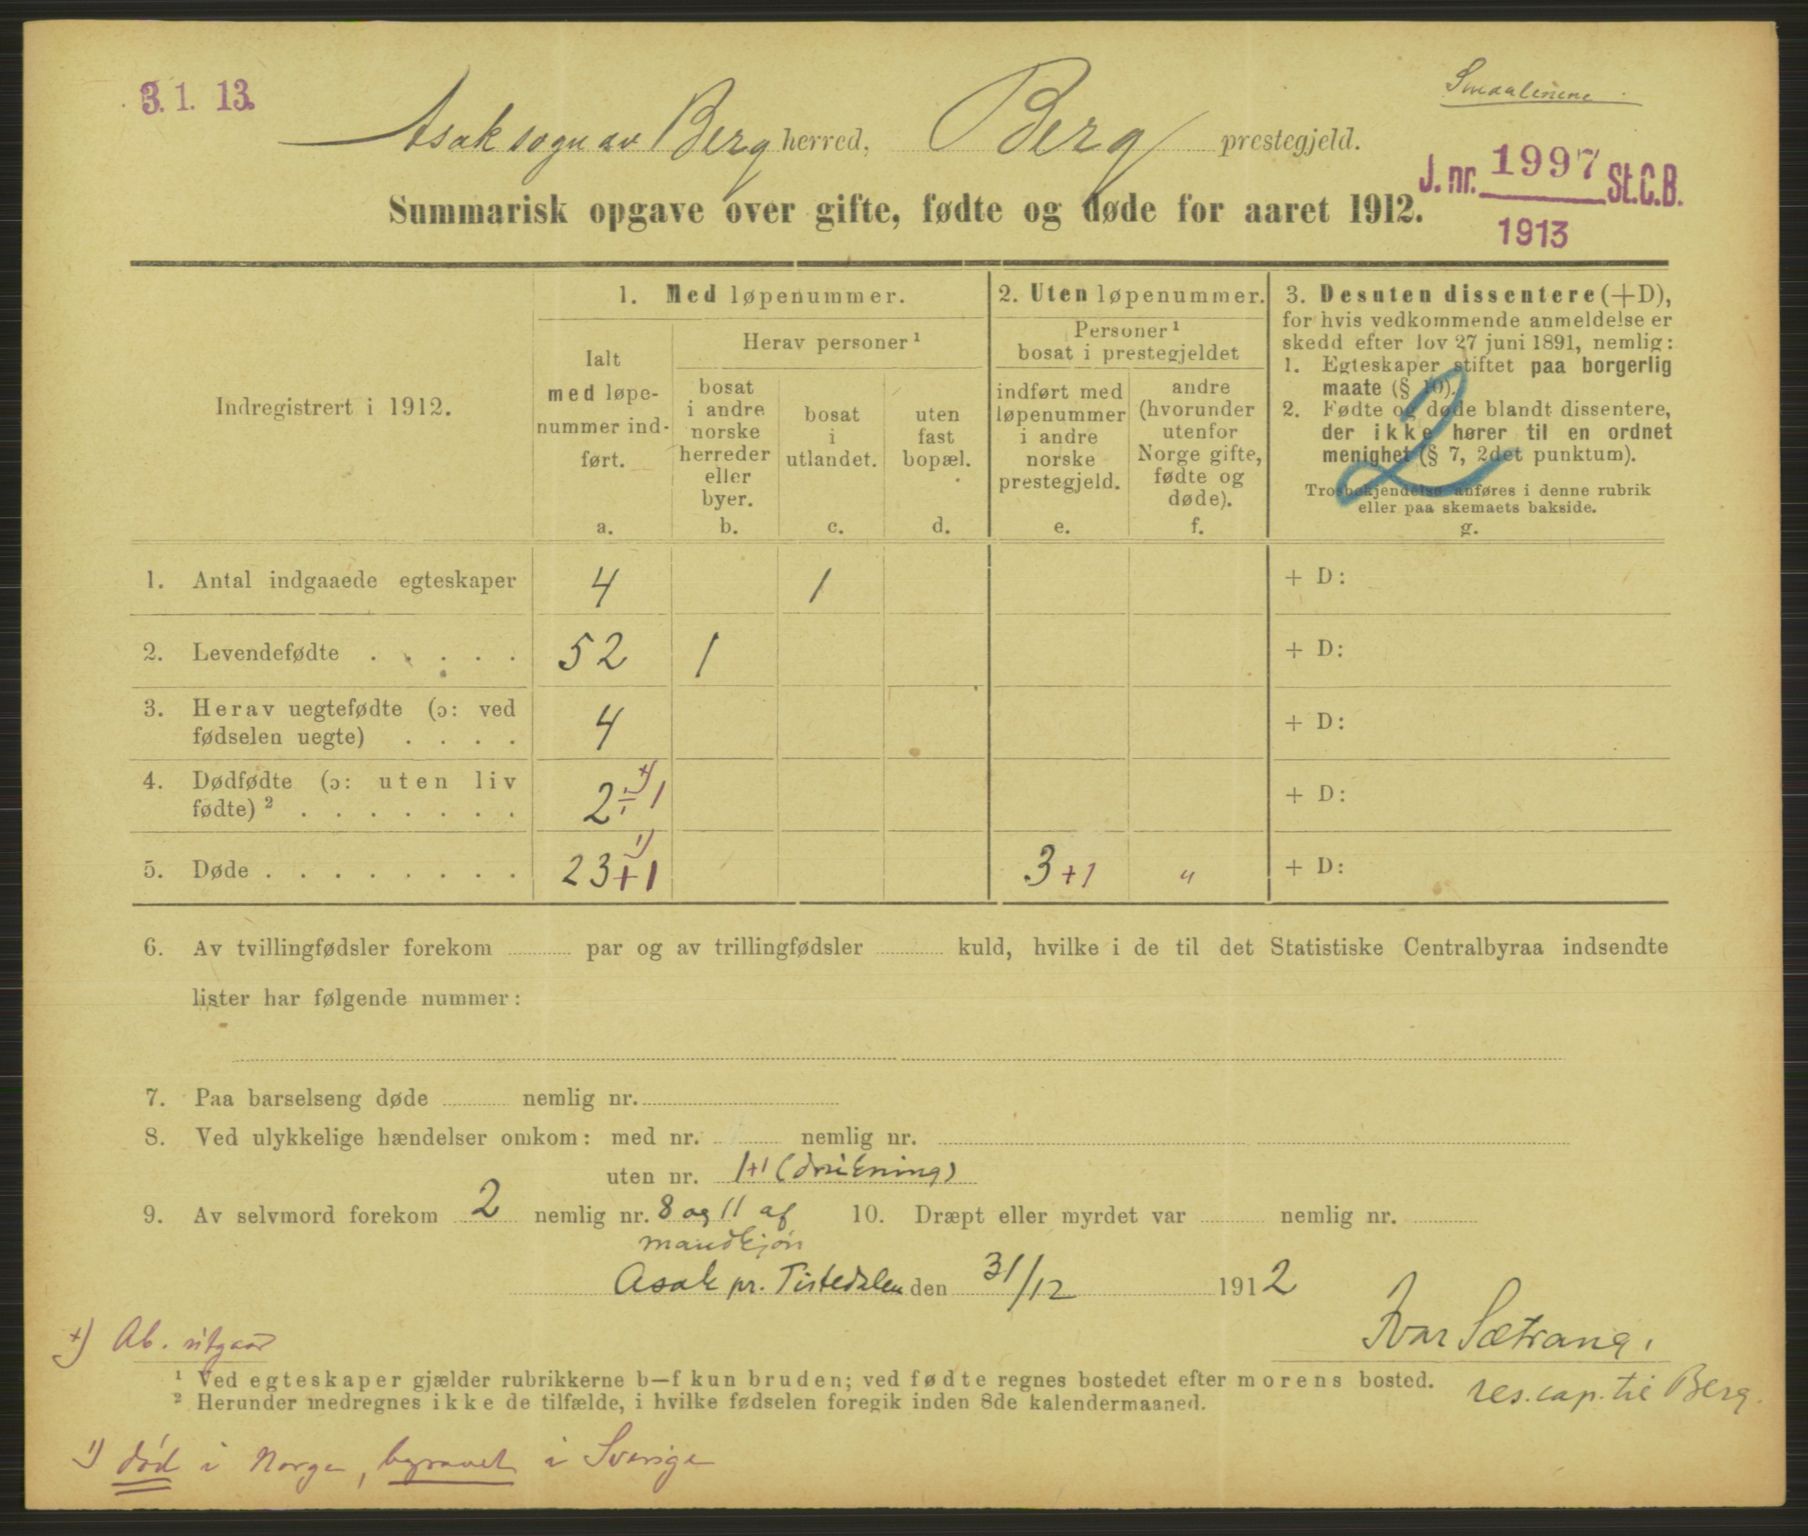 3. 1. 13.
Smaalenene
Asak sogn av Berg herred, Berg prestegjeld.
J. nr. 1997 St.C.B.
1913
Summarisk opgave over gifte, fødte og døde for aaret 1912.
Indregistrert i 1912.
1. Med løpenummer.
Ialt
med løpe-
nummer ind-
ført.
a.
Herav personer ¹
bosat
i andre
norske
herreder
eller
byer.
b.
bosat
i
utlandet.
c.
uten
fast
bopæl.
d.
2. Uten løpenummer.
Personer ¹
bosat i prestegjeldet
indført med
løpenummer
i andre
norske
prestegjeld.
e.
andre
(hvorunder
utenfor
Norge gifte,
fødte og
døde).
f.
3. Desuten dissentere (+D),
for hvis vedkommende anmeldelse er
skedd efter lov 27 juni 1891, nemlig:
1. Egteskaper stiftet paa borgerlig
maate (§ 10).
2. Fødte og døde blandt dissentere,
der ikke hører til en ordnet
menighet (§ 7, 2det punktum).
Trosbekjendelse anføres i denne rubrik
eller paa skemaets bakside.
g.
2
1. Antal indgaaede egteskaper 4 1 + D:
2. Levendefødte . . . . . 52 1 + D:
3. Herav uegtefødte (ɔ: ved
fødselen uegte) . . . . 4 + D:
4. Dødfødte (ɔ: uten liv
fødte) ² . . . . . . . 2 ÷ 1 +) + D:
5. Døde . . . . . . . . 23 + 1 ¹) 3 + 1 " + D:
6. Av tvillingfødsler forekom par og av trillingfødsler kuld, hvilke i de til det Statistiske Centralbyraa indsendte
lister har følgende nummer:
7. Paa barselseng døde nemlig nr.
8. Ved ulykkelige hændelser omkom: med nr. nemlig nr.
uten nr. 1+1 (drukning)
9. Av selvmord forekom 2 nemlig nr. 8 og 11 af
mandkjøn
10. Dræpt eller myrdet var nemlig nr.
Asak pr. Tistedalen den 31/12 1912
Ivar Sætrang,
res. cap. til Berg.
+) Ab. utgaar
¹ Ved egteskaper gjælder rubrikkerne b—f kun bruden; ved fødte regnes bostedet efter morens bosted.
² Herunder medregnes ikke de tilfælde, i hvilke fødselen foregik inden 8de kalendermaaned.
¹) død i Norge, begravet i Sverige